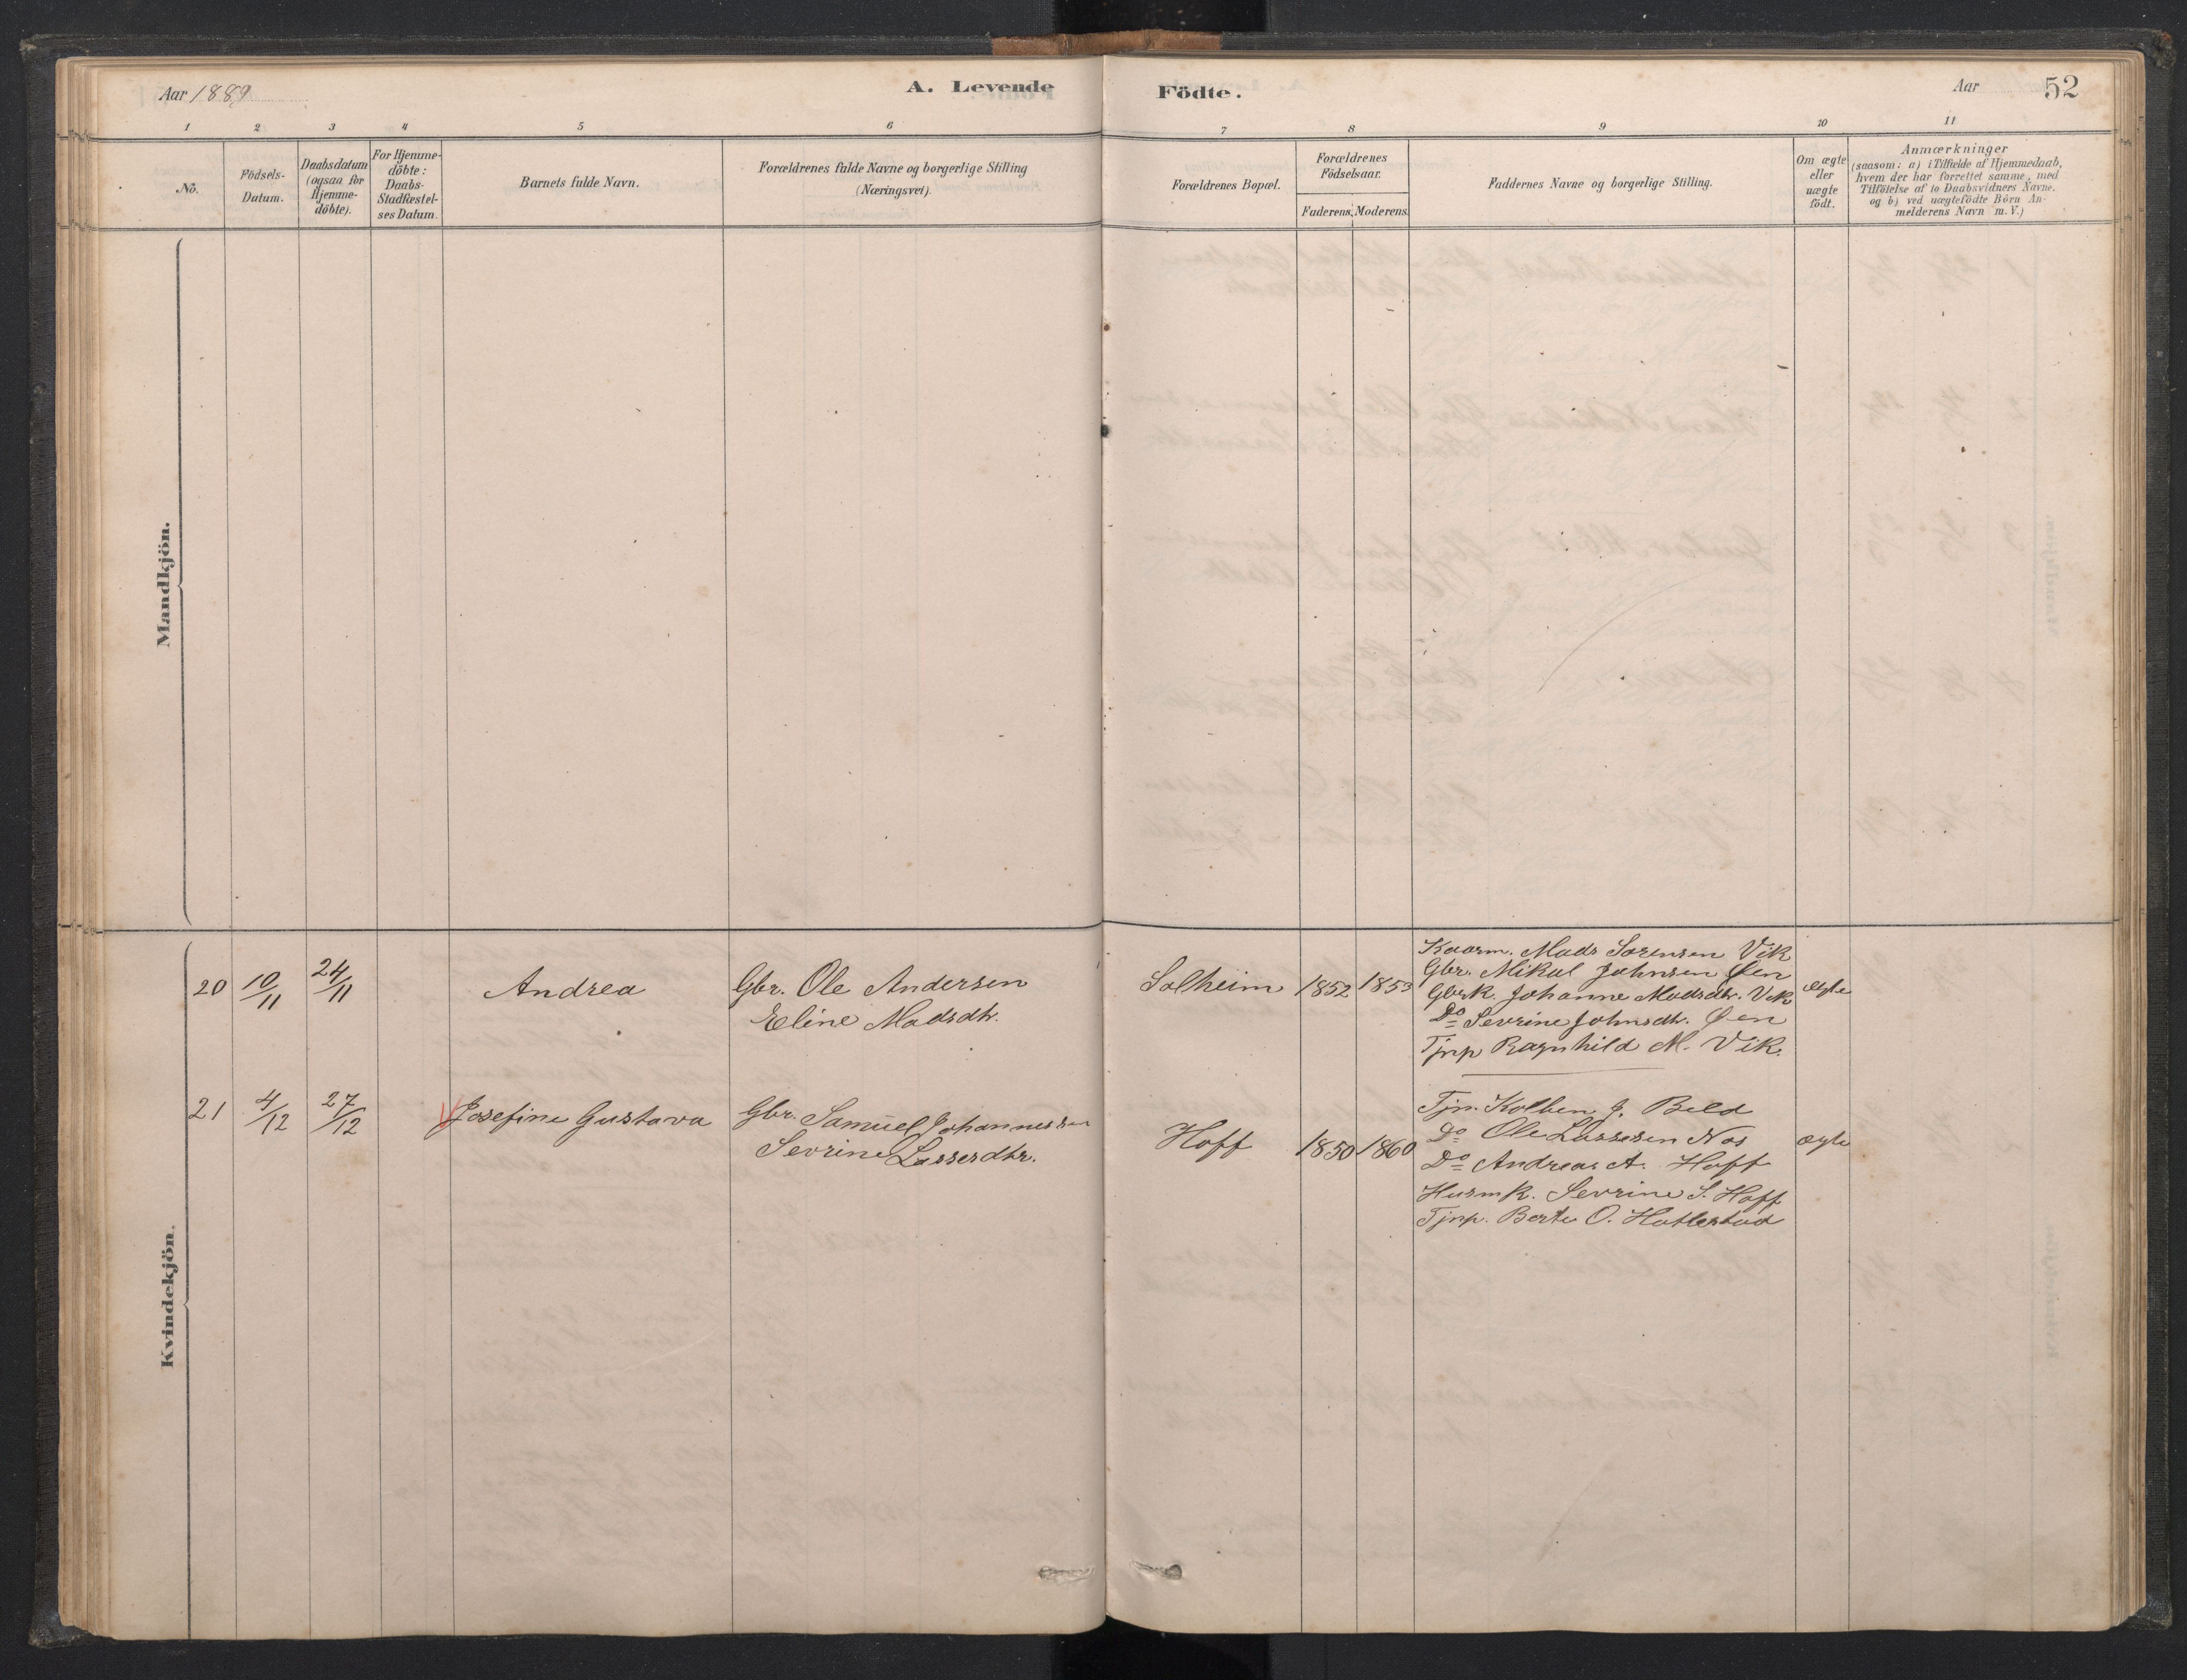 Aar 1889
A. Levende
Födte.
Aar
52
1 2 3 4 5 6 7 8 9 10 11
No.
Födsels-
Datum.
Daabsdatum
(ogsaa for
Hjemme-
döbte).
For Hjemme-
döbte:
Daabs-
Stadfæstel-
ses Datum.
Barnets fulde Navn.
Forældrenes fulde Navne og borgerlige Stilling
(Næringsvei).
Forældrenes Bopæl.
Forældrenes
Födselsaar.
Faderens.
Moderens.
Faddernes Navne og borgerlige Stilling.
Om ægte
eller
uægte
födt.
Anmærkninger
(saasom: a) i Tilfælde af Hjemmedaab,
hvem der har forrettet samme, med
Tilföielse af to Daabsvidners Navne.
og b) ved uægtefödte Börn An-
melderens Navn m. V.)
Mandkjön.
Kvindekjön.
20 10/11 24/11 Andrea
Gbr. Ole Andersen
Eline Madsdtr.
Solheim 1852 1853
Kaarm. Mads Sørensen Vik
Gbr. Mikal Johnsen Øen
Gbrk. Johanne Madsdtr. Vik
Do Sevrine Johnsdtr. Øen
Tjnp Ragnhild M. Vik.
ægte
21 4/12 27/12 Josefine Gustava
Gbr. Samuel Johannessen
Sevrine Lassesdtr.
Hoff 1850 1860
Tjn. Kolben J. Beld
Do Ole Lassesen Nos
Do Andreas A. Hoff
Husmk. Sevrine S. Hoff
Tjnp. Berte O. Hatlestad
ægte